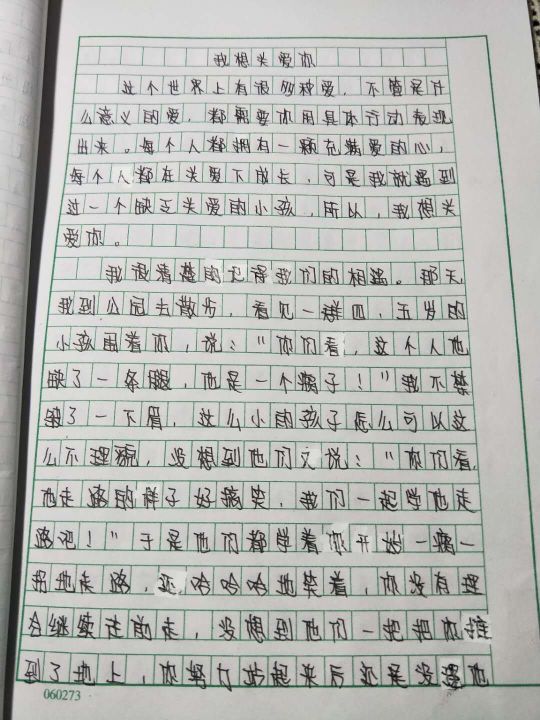 我想关爱你
这个世界上有很多种爱，不管是什
么意义的爱，都需要你用具体行动表现
出来。每个人都拥有一颗充满爱的心，
每个人都在关爱下成长，可是我就遇到
过一个缺乏关爱的小孩，所以，我想关
爱你。
我很清楚的记得我们的相遇。那天
我到公园去散步，看见一群四、五岁的
小孩围着你，说：“你们看，这个人他
缺了一条腿，他是一个瘸子！”我不禁
皱了一下眉，这么小的孩子怎么可以这
么不理貌，没想到他们又说：“你们看，
他走路的样子好搞笑，我们一起学他走
路吧！”于是他们都学着你开始一瘸一
拐地走路，还哈哈哈地笑着，你没有理
会继续走前走，没想到他们一把把你推
到了地上，你努力站起来后还是没理他
060273